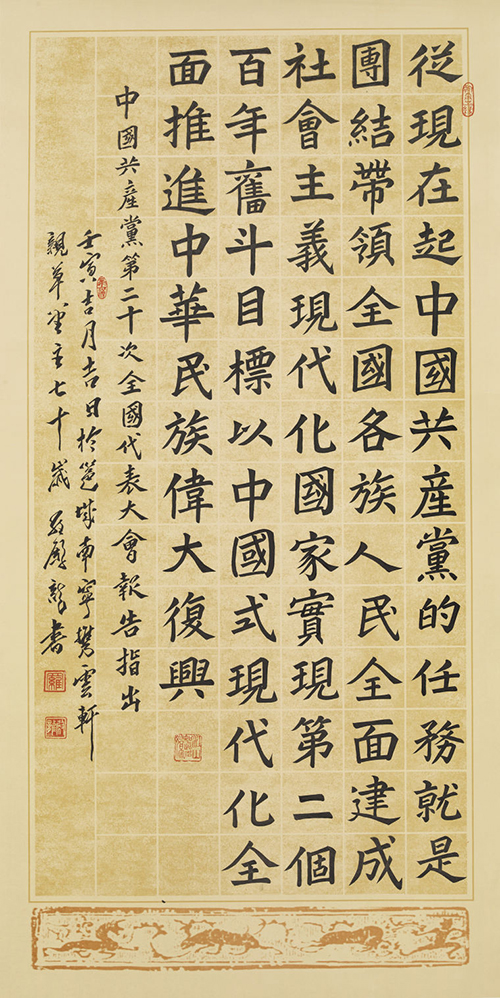 從現在起中國共產黨的任務就是
團結帶領全國各族人民全面建成
社會主義現代化國家實現第二個
百年奮斗目標以中國式現代化全
面推進中華民族偉大復興
中國共產黨第二十次全國代表大會報告指出
壬寅吉月吉日於邕城南寧攬雲軒
親草堂主七十歲 龍書